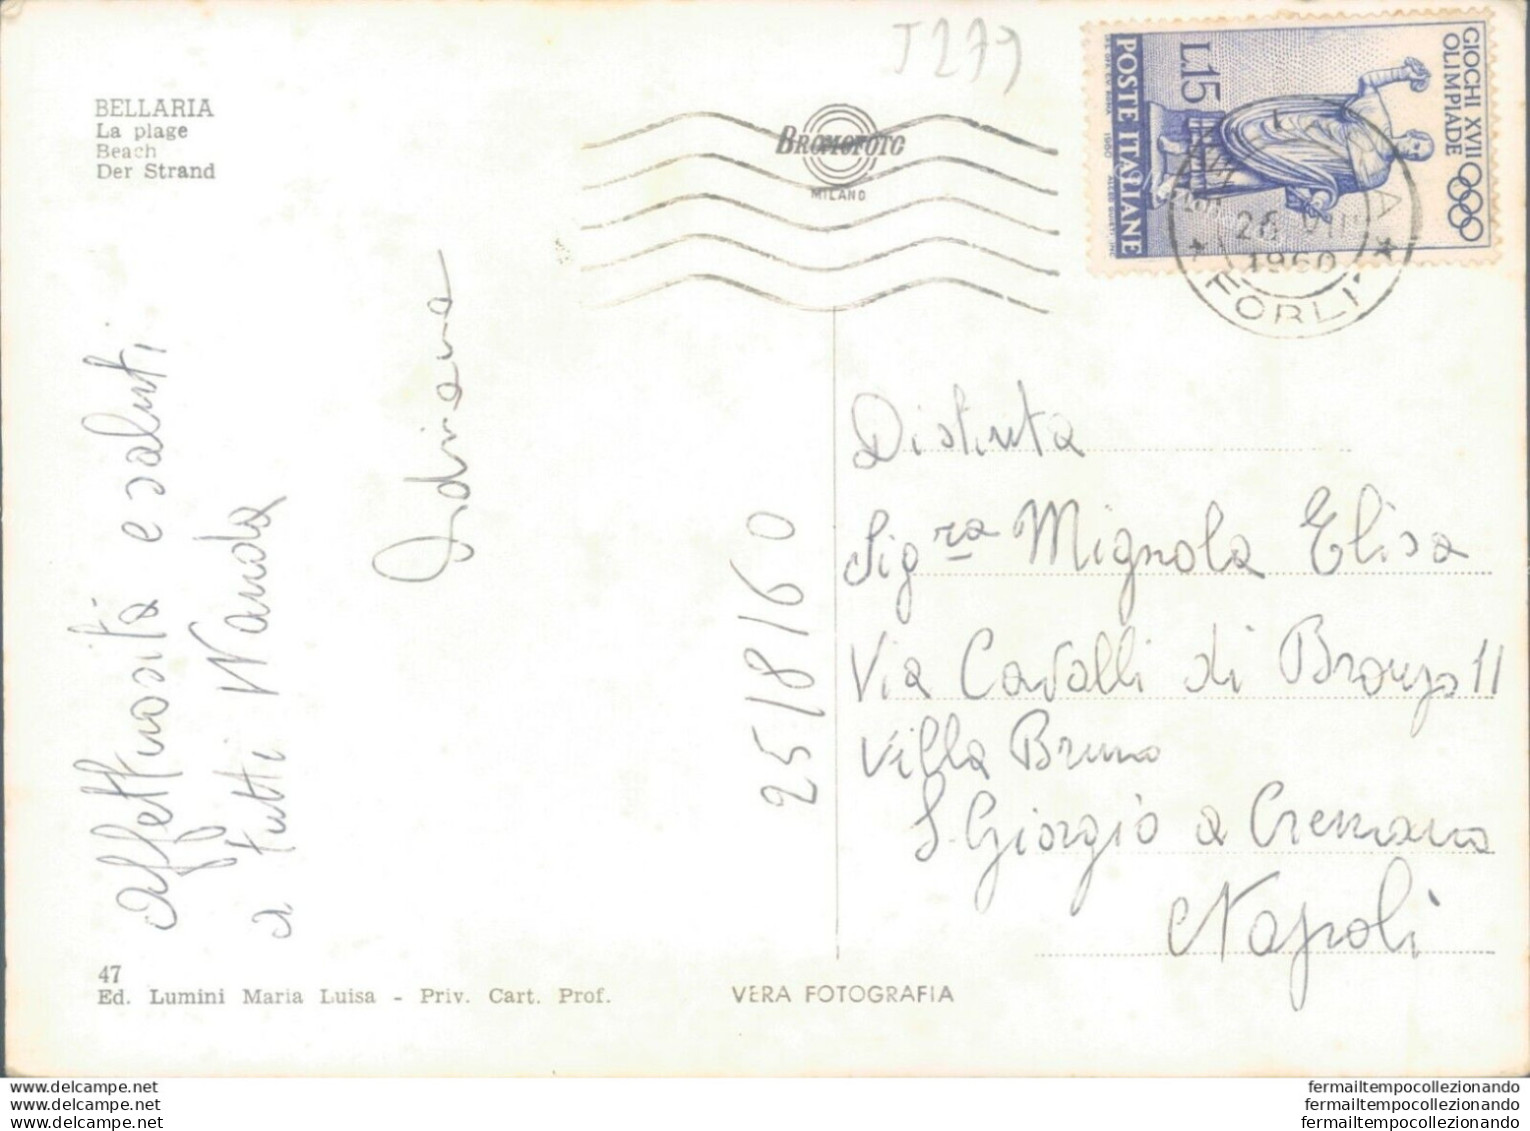 J279
BELLARIA
La plage
Beach
Der Strand
BROMOFOTO
MILANO
GIOCHI XVII
OLIMPIADE
L.15
POSTE ITALIANE
26 VIII
1960
FORLI'
affettuosità e saluti
a tutti Wanda
Adriana
25/8/60
Distinta
Sig.ra Mignola Elisa
Via Cavalli di Bronzo 11
Villa Bruno
S. Giorgio a Cremano
Napoli
47
Ed. Lumini Maria Luisa - Priv. Cart. Prof.
VERA FOTOGRAFIA
www.delcampe.net
www.delcampe.net
www.delcampe.net
fermailtempocollezionando
fermailtempocollezionando
fermailtempocollezionando